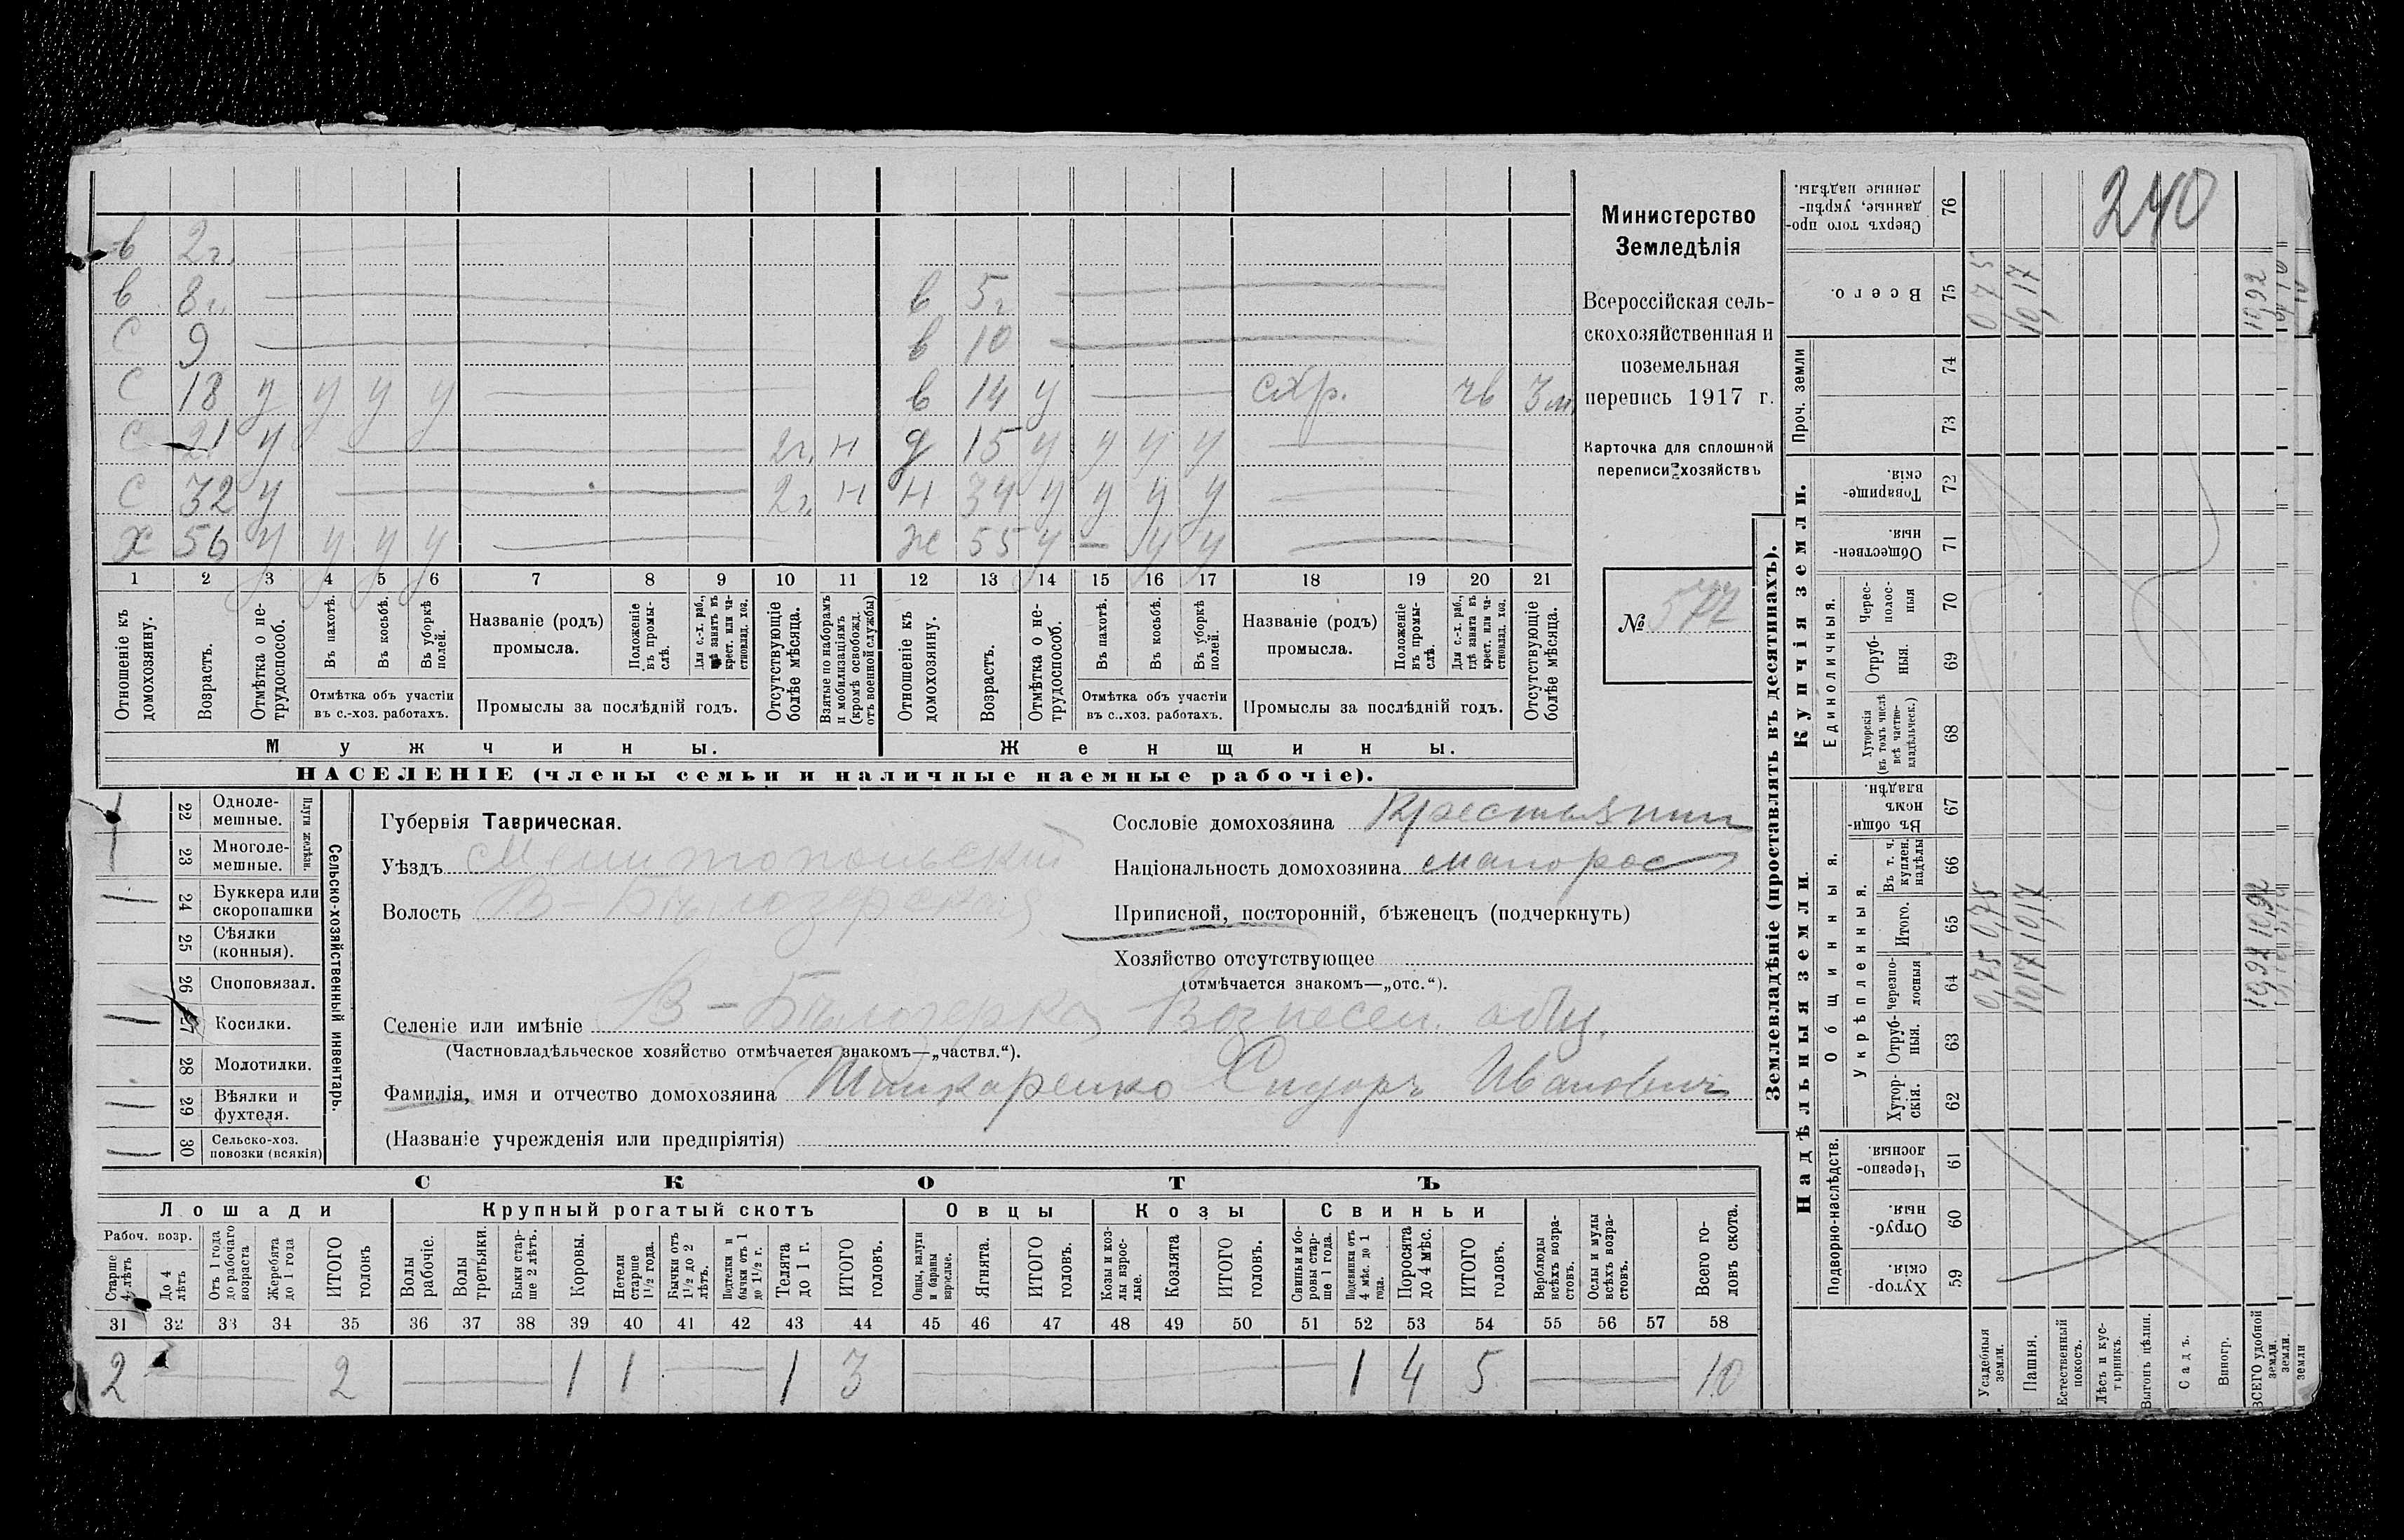 240
в 2 г.
в 8 г. — в 5 г. —
с 9 — в 10 —
с 18 у у у у — в 14 у — схр. чв 3 м.
с 21 у — 2 г. н д 15 у у у у —
с 32 у — 2 г. н н 34 у у у у —
х 56 у у у у — ж 55 у — у у —
1 2 3 4 5 6 7 8 9 10 11 12 13 14 15 16 17 18 19 20 21
Отношеніе къ домохозяину.
Возрастъ.
Отмѣтка о нетрудоспособ.
Въ пахотѣ.
Въ косьбѣ.
Въ уборкѣ полей.
Отмѣтка объ участіи въ с.-хоз. работахъ.
Названіе (родъ) промысла.
Положеніе въ промыслѣ.
Для с.-х. раб., гдѣ занятъ въ крест. или частновлад. хоз.
Промыслы за послѣдній годъ.
Отсутствующіе болѣе мѣсяца.
Взятые по наборамъ и мобилизаціямъ (кромѣ освобожд. отъ военной службы)
Отношеніе къ домохозяину.
Возрастъ.
Отмѣтка о нетрудоспособ.
Въ пахотѣ.
Въ косьбѣ.
Въ уборкѣ полей.
Отмѣтка объ участіи въ с.-хоз. работахъ.
Названіе (родъ) промысла.
Положеніе въ промыслѣ.
Для с.-х. раб., гдѣ занята въ крест. или частновлад. хоз.
Промыслы за послѣдній годъ.
Отсутствующіе болѣе мѣсяца.
Мужчины. Женщины.
НАСЕЛЕНІЕ (члены семьи и наличные наемные рабочіе).
Министерство
Земледѣлія
Всероссійская сель-
скохозяйственная и
поземельная
перепись 1917 г.
Карточка для сплошной
переписи хозяйствъ
№ 572
Сельско-хозяйственный инвентарь.
Плуги желѣзн.
22 Одноле-
мешные.
23 Многоле-
мешные.
24 Буккера или
скоропашки
25 Сѣялки
(конныя).
26 Сноповязал.
27 Косилки.
28 Молотилки.
29 Вѣялки и
фухтеля.
30 Сельско-хоз.
повозки (всякія)
Губернія Таврическая.
Уѣздъ Мелитопольскій
Волость В-Бѣлозерская
Сословіе домохозяина Крестьянин
Національность домохозяина малорос
Приписной, посторонній, бѣженецъ (подчеркнуть)
Хозяйство отсутствующее
(отмѣчается знакомъ—„отс.“).
Селеніе или имѣніе В-Бѣлозерка Вознесен. общ.
(Частновладѣльческое хозяйство отмѣчается знакомъ—„частвл.“).
Фамилія, имя и отчество домохозяина Шинкаренко Сидоръ Ивановичъ
(Названіе учрежденія или предпріятія)
СКОТЪ
Лошади Крупный рогатый скотъ Овцы Козы Свиньи
Рабоч. возр.
Старше 4 лѣтъ
До 4 лѣтъ
Отъ 1 года до рабочаго возраста
Жеребята до 1 года
ИТОГО головъ
Волы рабочіе.
Волы третьяки.
Быки старше 2 лѣтъ.
Коровы.
Нетели старше 1½ года.
Бычки отъ 1½ до 2 лѣтъ.
Подтелки и бычки отъ 1 до 1½ г.
Телята до 1 г.
ИТОГО головъ.
Овцы, валухи и бараны взрослые.
Ягнята.
ИТОГО головъ.
Козы и козлы взрослые.
Козлята
ИТОГО головъ.
Свиньи и боровы старше 1 года.
Подсвинки отъ 4 мѣс. до 1 года.
Поросята до 4 мѣс.
ИТОГО головъ.
Верблюды всѣхъ возрастовъ.
Ослы и мулы всѣхъ возрастовъ.
Всего головъ скота.
31 32 33 34 35 36 37 38 39 40 41 42 43 44 45 46 47 48 49 50 51 52 53 54 55 56 57 58
2 — 2 — 1 1 — 1 3 — 1 4 5 — 10
Землевладѣніе (проставлять въ десятинахъ).
Надѣльныя земли.
Купчія земли.
Проч. земли
Подворно-наслѣдств.
Общинныя.
Укрѣпленныя.
Единоличныя.
59 Хуторскія.
60 Отрубныя.
61 Черезполосныя.
62 Хуторскія.
63 Отрубныя.
64 Черезполосныя
65 Итого.
66 Въ т. ч. куплен. надѣлы
67 Въ общинномъ владѣн.
68 Хуторскія (въ томъ числѣ всѣ частновладѣльческ.)
69 Отрубныя.
70 Чересполосныя
71 Общественныя.
72 Товарищескія.
73
74
75 Всего.
76 Сверхъ того проданные, укрѣпленные надѣлы.
Усадебныя земли. 0,75 0,75 0,75
Пашня. 10,17 10,17 10,17
Естественный покосъ.
Лѣсъ и кустарникъ.
Выгонъ цѣлин.
Садъ.
Виногр.
ВСЕГО удобной земли. 10,92 10,92 10,92
земли.
земли